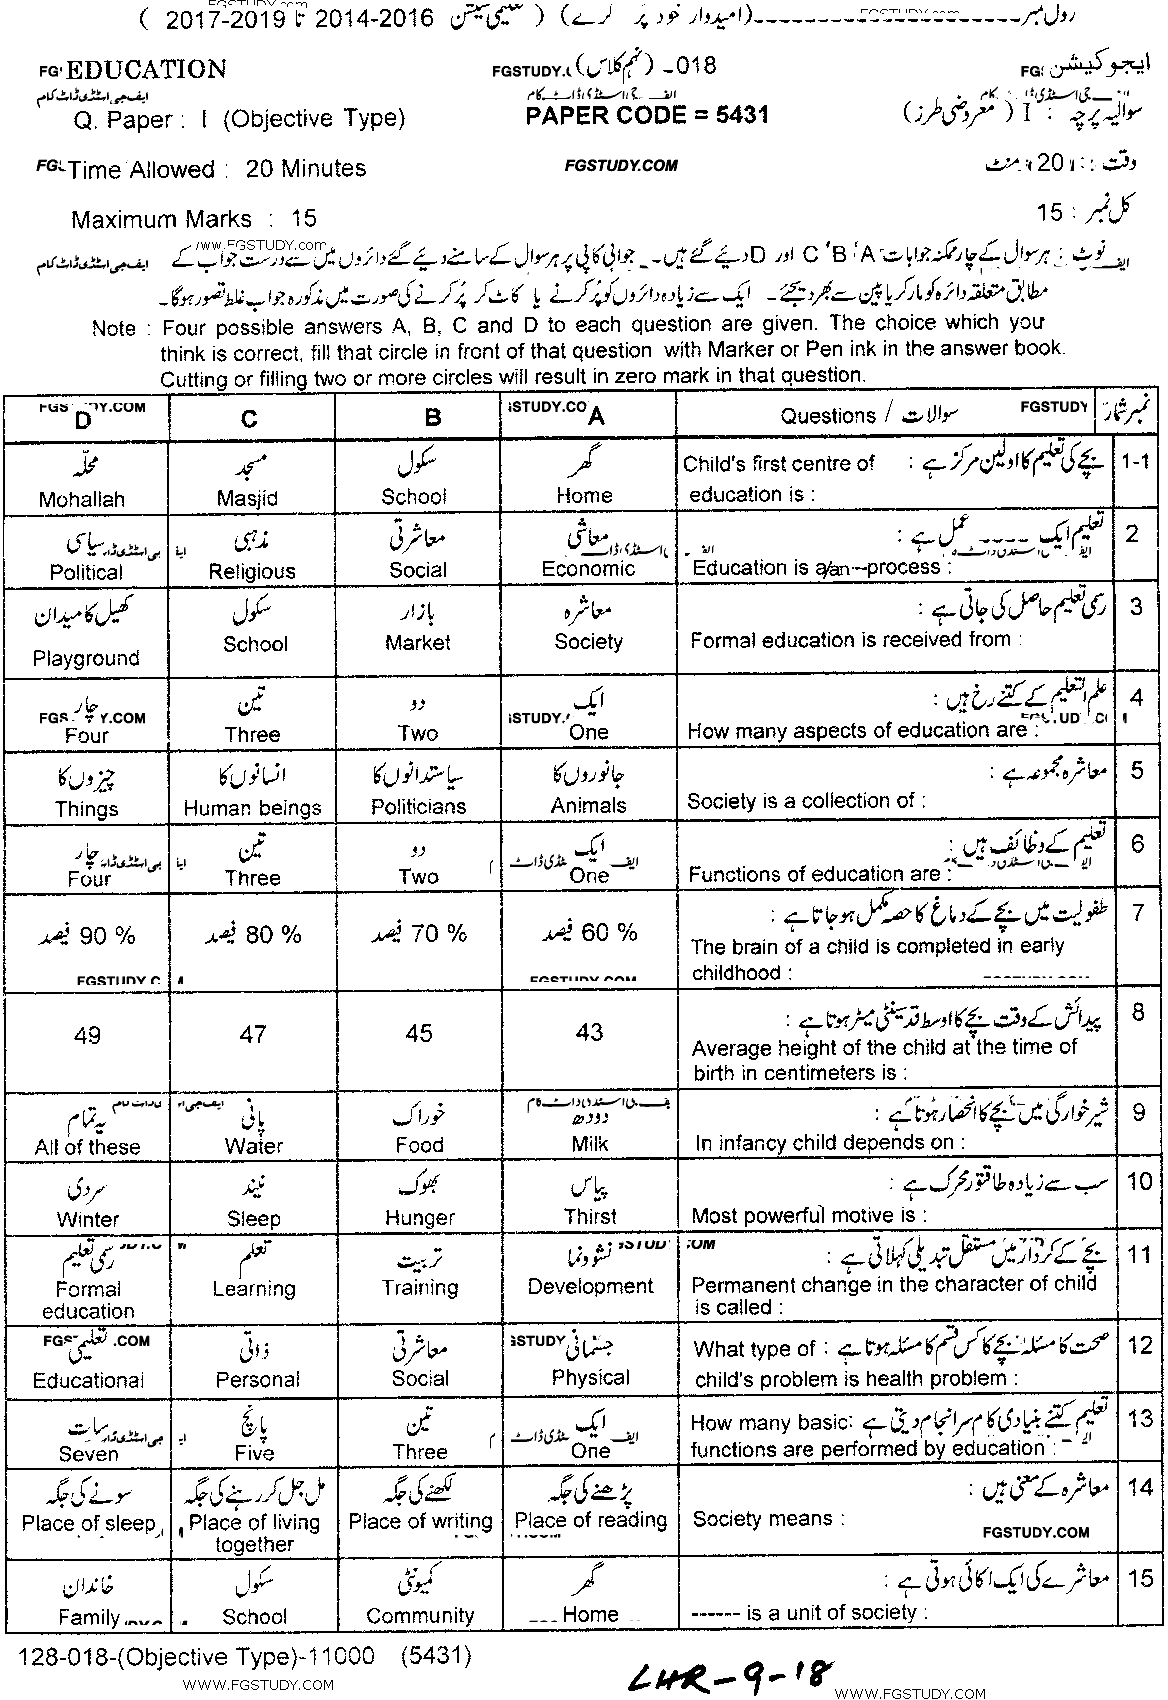 FGSTUDY.com
رول نمبر ---------------- (امیدوار خود پُر کرے) ( تعلیمی سیشن 2016-2014 تا 2019-2017 )
EDUCATION FGSTUDY.C (نہم کلاس) -018 ایجوکیشن
ایف جی اسٹڈی ڈاٹ کام
Q. Paper : I (Objective Type) PAPER CODE = 5431 سوالیہ پرچہ : I ( معروضی طرز )
Time Allowed : 20 Minutes FGSTUDY.COM وقت : 20 منٹ
Maximum Marks : 15 کل نمبر : 15
www.FGSTUDY.com
نوٹ : ہر سوال کے چار ممکنہ جوابات A ' B ' C اور D دیئے گئے ہیں۔ جوابی کاپی پر ہر سوال کے سامنے دیئے گئے دائروں میں سے درست جواب کے ایف جی اسٹڈی ڈاٹ کام
مطابق متعلقہ دائرہ کو مارکر یا پین سے بھر دیجئے۔ ایک سے زیادہ دائروں کو پُر کرنے یا کاٹ کر پُر کرنے کی صورت میں مذکورہ جواب غلط تصور ہوگا۔
Note : Four possible answers A, B, C and D to each question are given. The choice which you
think is correct, fill that circle in front of that question with Marker or Pen ink in the answer book.
Cutting or filling two or more circles will result in zero mark in that question.
D C B A Questions / سوالات نمبر شمار
محلّہ مسجد سکول گھر بچے کی تعلیم کا اولین مرکز ہے : 1-1
Mohallah Masjid School Home Child's first centre of education is :
سیاسی مذہبی معاشرتی معاشی تعلیم ایک ---- عمل ہے : 2
Political Religious Social Economic Education is a/an--process :
کھیل کا میدان سکول بازار معاشرہ رسمی تعلیم حاصل کی جاتی ہے : 3
Playground School Market Society Formal education is received from :
چار تین دو ایک علم التعلیم کے کتنے رخ ہیں : 4
Four Three Two One How many aspects of education are :
چیزوں کا انسانوں کا سیاستدانوں کا جانوروں کا معاشرہ مجموعہ ہے : 5
Things Human beings Politicians Animals Society is a collection of :
چار تین دو ایک تعلیم کے وظائف ہیں : 6
Four Three Two One Functions of education are :
90 % فیصد 80 % فیصد 70 % فیصد 60 % فیصد طفولیت میں بچے کے دماغ کا حصہ مکمل ہو جاتا ہے : 7
The brain of a child is completed in early
childhood :
پیدائش کے وقت بچے کا اوسط قد سینٹی میٹر ہوتا ہے : 8
49 47 45 43 Average height of the child at the time of
birth in centimeters is :
یہ تمام پانی خوراک دودھ شیر خوارگی میں بچے کا انحصار ہوتا ہے : 9
All of these Water Food Milk In infancy child depends on :
سردی نیند بھوک پیاس سب سے زیادہ طاقتور محرک ہے : 10
Winter Sleep Hunger Thirst Most powerful motive is :
رسمی تعلیم تعلم تربیت نشوونما بچے کے کردار میں مستقل تبدیلی کہلاتی ہے : 11
Formal education Learning Training Development Permanent change in the character of child
is called :
تعلیمی ذاتی معاشرتی جسمانی صحت کا مسئلہ بچے کا کس قسم کا مسئلہ ہوتا ہے : What type of 12
Educational Personal Social Physical child's problem is health problem :
سات پانچ تین ایک تعلیم کتنے بنیادی کام سرانجام دیتی ہے : How many basic 13
Seven Five Three One functions are performed by education :
سونے کی جگہ مل جل کر رہنے کی جگہ لکھنے کی جگہ پڑھنے کی جگہ معاشرہ کے معنی ہیں : 14
Place of sleep Place of living together Place of writing Place of reading Society means :
FGSTUDY.COM
خاندان سکول کمیونٹی گھر معاشرے کی ایک اکائی ہوتی ہے : 15
Family School Community Home ------ is a unit of society :
128-018-(Objective Type)-11000 (5431)
LHR-9-18
WWW.FGSTUDY.COM WWW.FGSTUDY.COM